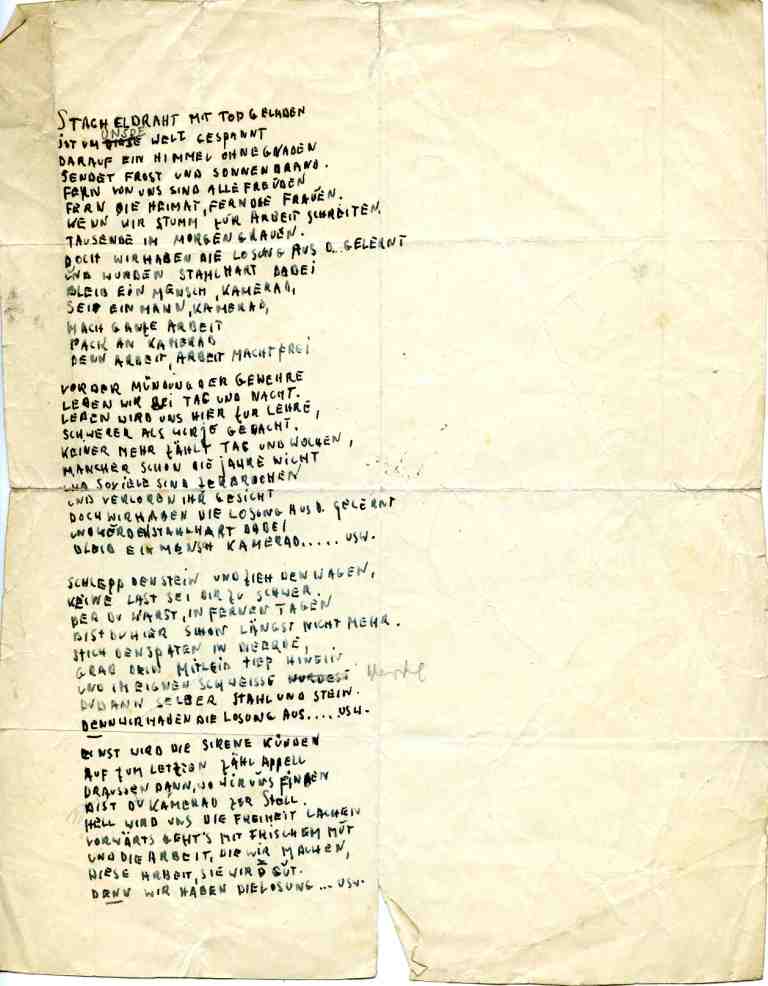 STACHELDRAHT MIT TOD GELADEN
IST UM UNSRE WELT GESPANNT
DARAUF EIN HIMMEL OHNE GNADEN
SENDET FROST UND SONNENBRAND.
FERN VON UNS SIND ALLE FREUDEN
FERN DIE HEIMAT, FERN DIE FRAUEN.
WENN WIR STUMM ZUR ARBEIT SCHREITEN.
TAUSENDE IM MORGENGRAUEN.
DOCH WIR HABEN DIE LOSUNG AUS D.. GELERNT
UND WURDEN STAHLHART DABEI
BLEIB EIN MENSCH, KAMERAD,
SEI EIN MANN, KAMERAD,
MACH GANZE ARBEIT
PACK AN KAMERAD
DENN ARBEIT, ARBEIT MACHT FREI
VOR DER MÜNDUNG DER GEWEHRE
LEBEN WIR BEI TAG UND NACHT.
LEBEN WIRD UNS HIER ZUR LEHRE,
SCHWERER ALS WIR'S JE GEDACHT.
KEINER MEHR ZÄHLT TAG UND WOCHEN,
MANCHER SCHON DIE JAHRE NICHT
UND SOVIELE SIND ZERBROCHEN
UND VERLOREN IHR GESICHT
DOCH WIR HABEN DIE LOSUNG AUS D. GELERNT
UND WERDEN STAHLHART DABEI
BLEIB EIN MENSCH KAMERAD..... USW.
SCHLEPP DEN STEIN UND ZIEH DEN WAGEN,
KEINE LAST SEI DIR ZU SCHWER.
DER DU WARST, IN FERNEN TAGEN
BIST DU HIER SCHON LÄNGST NICHT MEHR.
STICH DEN SPATEN IN DIE ERDE,
GRAB DEIN MITLEID TIEF HINEIN
UND IM EIGNEN SCHWEISSE
DU DANN SELBER STAHL UND STEIN.
DENN WIR HABEN DIE LOSUNG AUS.... USW.
EINST WIRD DIE SIRENE KÜNDEN
AUF ZUM LETZTEN ZÄHLAPPELL
DRAUSSEN DANN, WO WIR UNS FINDEN
BIST DU KAMERAD ZUR STELL.
HELL WIRD UNS DIE FREIHEIT LACHEN
VORWÄRTS GEHT'S MIT FRISCHEM MUT
UND DIE ARBEIT, DIE WIR MACHEN,
DIESE ARBEIT, SIE WIRD GUT.
DENN WIR HABEN DIE LOSUNG ... USW.